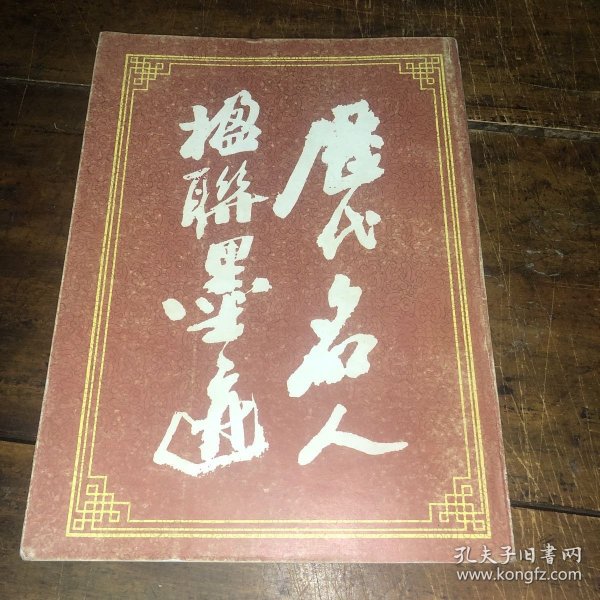 歷代名人
楹聯墨迹
孔夫子旧書网
www.kongfz.com